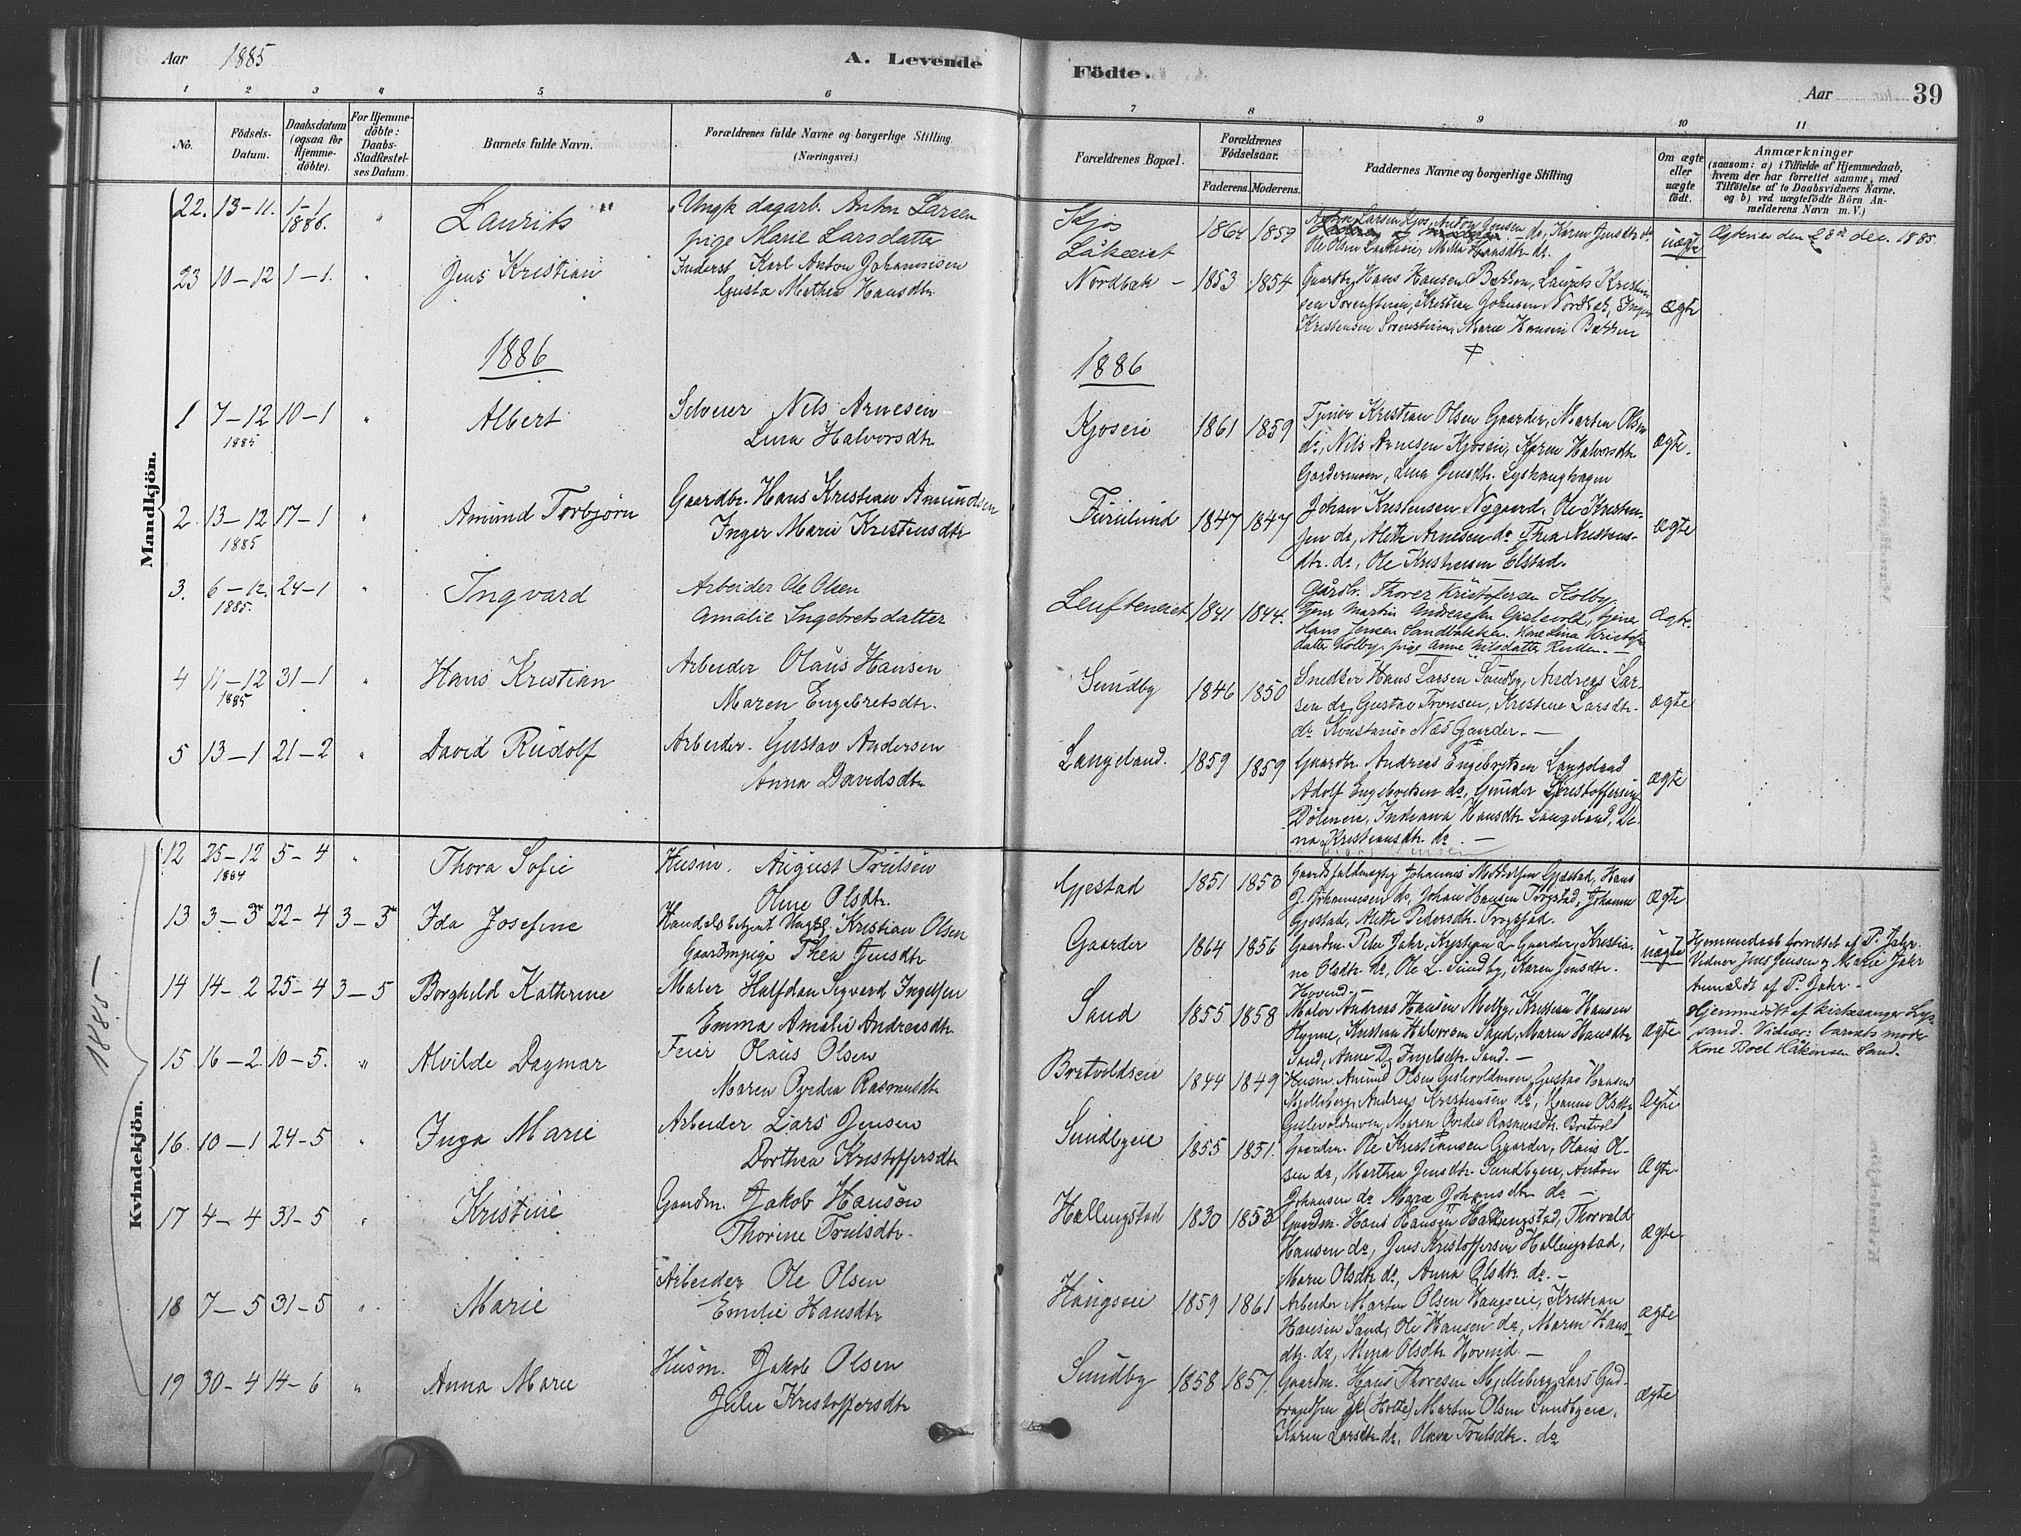 Aar 1885
A. Levende
Födte.
Aar
39
1 2 3 4 5 6 7 8 9 10 11
No.
Födsels-
Datum.
Daabsdatum
(ogsaa for
Hjemme-
döbte).
For Hjemme-
döbte:
Daabs-
Stadfæstel-
ses Datum.
Barnets fulde Navn.
Forældrenes fulde Navne og borgerlige Stilling
(Næringsvei.)
Forældrenes Bopæl.
Forældrenes
Födselsaar.
Faderens. Moderens.
Faddernes Navne og borgerlige Stilling
Om ægte
eller
uægte
födt.
Anmærkninger
(saasom: a) i Tilfælde af Hjemmedaab,
hvem der har forrettet samme, med
Tilföielse af to Daabsvidners Navne.
og b) ved uægtefödte Börn An-
melderens Navn m. V.)
Mandkjön.
22. 13-11. 1-1 1886. " Laurits
Ungk dagarb. Anton Larsen
pige Marie Larsdatter
Skjos
Låkeeiet
1864 1859
Ole Olsen Låkeeie, Mette Hansdtr do.
uægte
Ægteviet den 28de dec. 1885.
23 10-12 1-1. " Jens Kristian
Inderst Karl Anton Johannesen
Gusta Mathea Hansdtr.
Nordbak - 1853 1854
Gaardbr Hans Hansen Bakken, Laurits Kristen-
sen Sorensteien, Kristian Johnsen Nordbak, Inger
Kristensen Sorensteien, Marie Hansen Bakken
ægte
1886
1886
1 7-12 1885 10-1 " Albert
Selveier Nils Arnesen
Lina Halvorsdtr
Kjoseie 1861 1859
Tjener Kristian Olsen Gaarder, Morten Olsen
do, Nils Arnesen Kjoseie, Karen Halvorsdtr
Gardermoen, Lina Jensdtr. Lyshaughagen
ægte.
2. 13-12 1885 17-1 " Amund Torbjörn
Gaardbr. Hans Kristian Amundsen
Inger Marie Kristensdtr
Furulund 1847 1847
Johan Kristensen Nygaard, Ole Kristen-
sen do, Alette Arnesen do Thea Kristens-
dtr. do, Ole Kristensen Elstad.
ægte
3. 6-12. 1885. 24-1 " Ingvard
Arbeider Ole Olsen
Amalie Ingebretsdatter
Leuftneiet 1841 1844.
Gårdbr. Thorer Kristofersen Holby,
Tjener Martin Andreassen Gislevold, tjener
Hans Jensen Sandbakken. Kone Lina Kristofer
datter Holby, pige Anne Nilsdatter
ægte.
4 11-12 1885 31-1 " Hans Kristian
Arbeider Olaus Hansen
Maren Engebretsdtr.
Sundby 1846 1850
Snedker Hans Larsen Sundby, Andreas Lar-
sen do, Gustav Tronsen, Kristine Larsdtr.
do, Konstanse Næs Gaarder. -
ægte
5 13-1 21-2 " David Rudolf
Arbeider. Gustav Andersen
Anna Davidsdtr
Langeland. 1859 1859
Gaardbr. Andreas Engebretsen Langeland
Adolf Engebretsen do, Gunder Kristoffersen
Dölineie, Indiana Hansdtr Langeland, Di-
na Kristiansdtr. do. -
ægte
1885 -
Kvindekjön.
12 25-12 1884 5-4 " Thora Sofie
Husm. August Trulsen
Oline Olsdtr.
Gjestad 1851 1853
Gaardsfuldmægtig Johannes Gjestad, Hans
J. Johannesen do, Johan Hansen Trogstad, Johanne
Gjestad, Alette Pedersdtr. Trogstad.
ægte
13 3-3 22-4 3-3 Ida Josefine
Handelsbetjent Ungk. Kristian Olsen
Gaardmpige Thea Jensdtr
Gaarder 1864 1856
Gaardm. Peter Jahr, Kristian L. Gaarder, Kristia-
ne Olsdtr. do, Ole L. Sundby, Karen Jensdtr.
Hovind. -
uægte
Hjemmedaab forrettet af P. Jahr.
Vidner Jens Jensen og Marie Jahr
Anmeldt af P. Jahr. -
14 14-2 25-4 3-5 Borghild Kathrine
Maler Halfdan Sigvard Ingelsen
Emma Amalie Andreasdtr
Sand 1855 1858
Maler Andreas Hansen Melby, Kristian Hansen
Hymne, Kristian Halvorsen Sand, Maren Hansdtr
Sand, Anne D. Ingelsdtr. Sand. -
ægte
Hjemmedöbt af Kirkesanger
sand. Vidner: barnets moder
Kone Boel Håkonsen Sand.
15 16-2. 10-5. " Alvilde Dagmar
Feier Olaus Olsen
Maren Perdea Rasmusdtr
Bretvoldseie 1844 1849
Husm. Amund Olsen Gislevoldmoen, Gustav Hansen
Mjelleberg, Andreas Kristiansen do, Hanna Olsdtr
Gislevoldmoen, Maren Perdea Rasmusdtr. Bretvold
ægte
16. 10-1 24-5 " Inga Marie
Arbeider Lars Jensen
Dorthea Kristoffersdtr
Sundbyeie 1855 1851.
Gaardm. Ole Kristiansen Gaarder, Olaus Ol-
sen do, Marthea Jensdtr. Sundbyeie, Anton
Johansen do Marie Johansdtr do -
Ægte
17 4-4 31-5 " Kristine
Gaardm. Jakob Hansen
Thorine Trulsdtr.
Hællingstad 1830 1853
Gaardm. Hans Hansen Hællingstad, Thorvald
Hansen do, Jens Kristoffersen Hællingstad,
Maren Olsdtr do, Anna Olsdtr. do. -
Ægte
18 7-5 31-5 " Marie
Arbeider Ole Olsen
Emilie Hansdtr
Haugseie 1859 1861
Arbeider Morten Olsen Haugseie, Kristian
Hansen Sand, Ole Hansen do, Maren Hans-
dtr. do, Mina Olsdtr Hovind -
ægte
19 30-4 14-6 " Anna Marie
Husm. Jakob Olsen
Julie Kristoffersdtr
Sundby 1858 1857.
Gaardm. Hans Thoresen Mjelleberg, Lars Gud-
brandsen gk (Holte) Martin Olsen Sundbyeie,
Karen Larsdtr do, Olava Trulsdtr. do
ægte